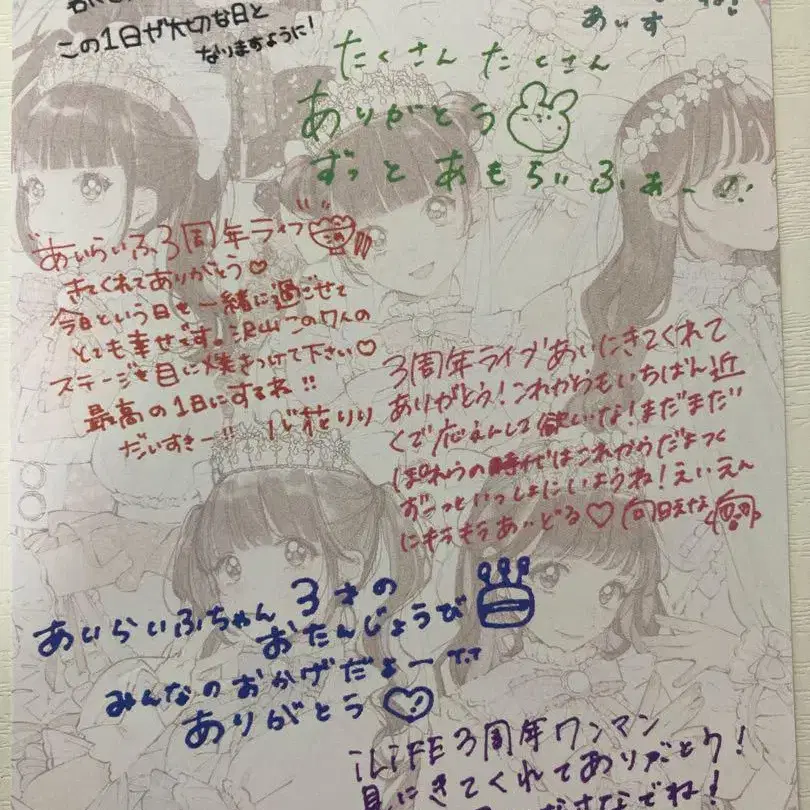 この1日が大切な日と
なりますように!
あいす
たくさん たくさん
ありがとう
ずっと あもらいふぁー の.
あいらいふ3周年ライブ
きてくれてありがとう♡
今日という日を一緒に過ごせて
とても幸せです。沢山この7人の
ステージを目に焼きつけて下さい♡
最高の1日にするね!!
だいすきー!! 心花りり
3周年ライブあいにきてくれて
ありがとう!これからもいちばん近
くで応えんして欲しいな!まだまだ
ぼれらの時代はこれからだよっ
ずーっといっしょにいようね!えいえん
にキラキラあいどる♡ 向日えな
あいらいふちゃん 3才の
おたんじょうび
みんなのおかげだよー T.T
ありがとう
iLiFE 3周年ワンマン
見にきてくれてありがとう!